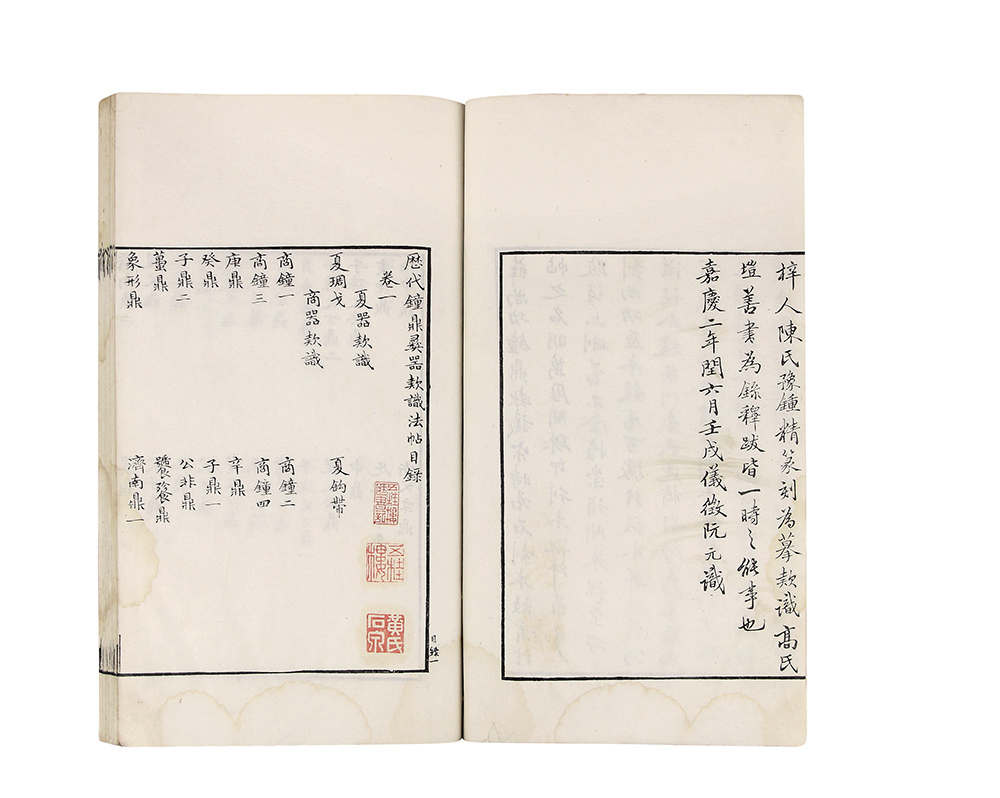 梓人陳氏豫鍾精篆刻為摹欵識高氏
塏善書為錄釋跋皆一時之能事也
嘉慶二年閏六月壬戌儀徵阮元識
歴代鐘鼎彝器欵識法帖目錄
卷一
夏器欵識
夏琱戈 夏鈎帶
商器欵識
商鐘一 商鐘二
商鐘三 商鐘四
庚鼎 辛鼎
癸鼎 子鼎一
子鼎二 公非鼎
蠆鼎 饕餮鼎
象形鼎 濟南鼎一
五桂樓
黃氏石泉
目錄一